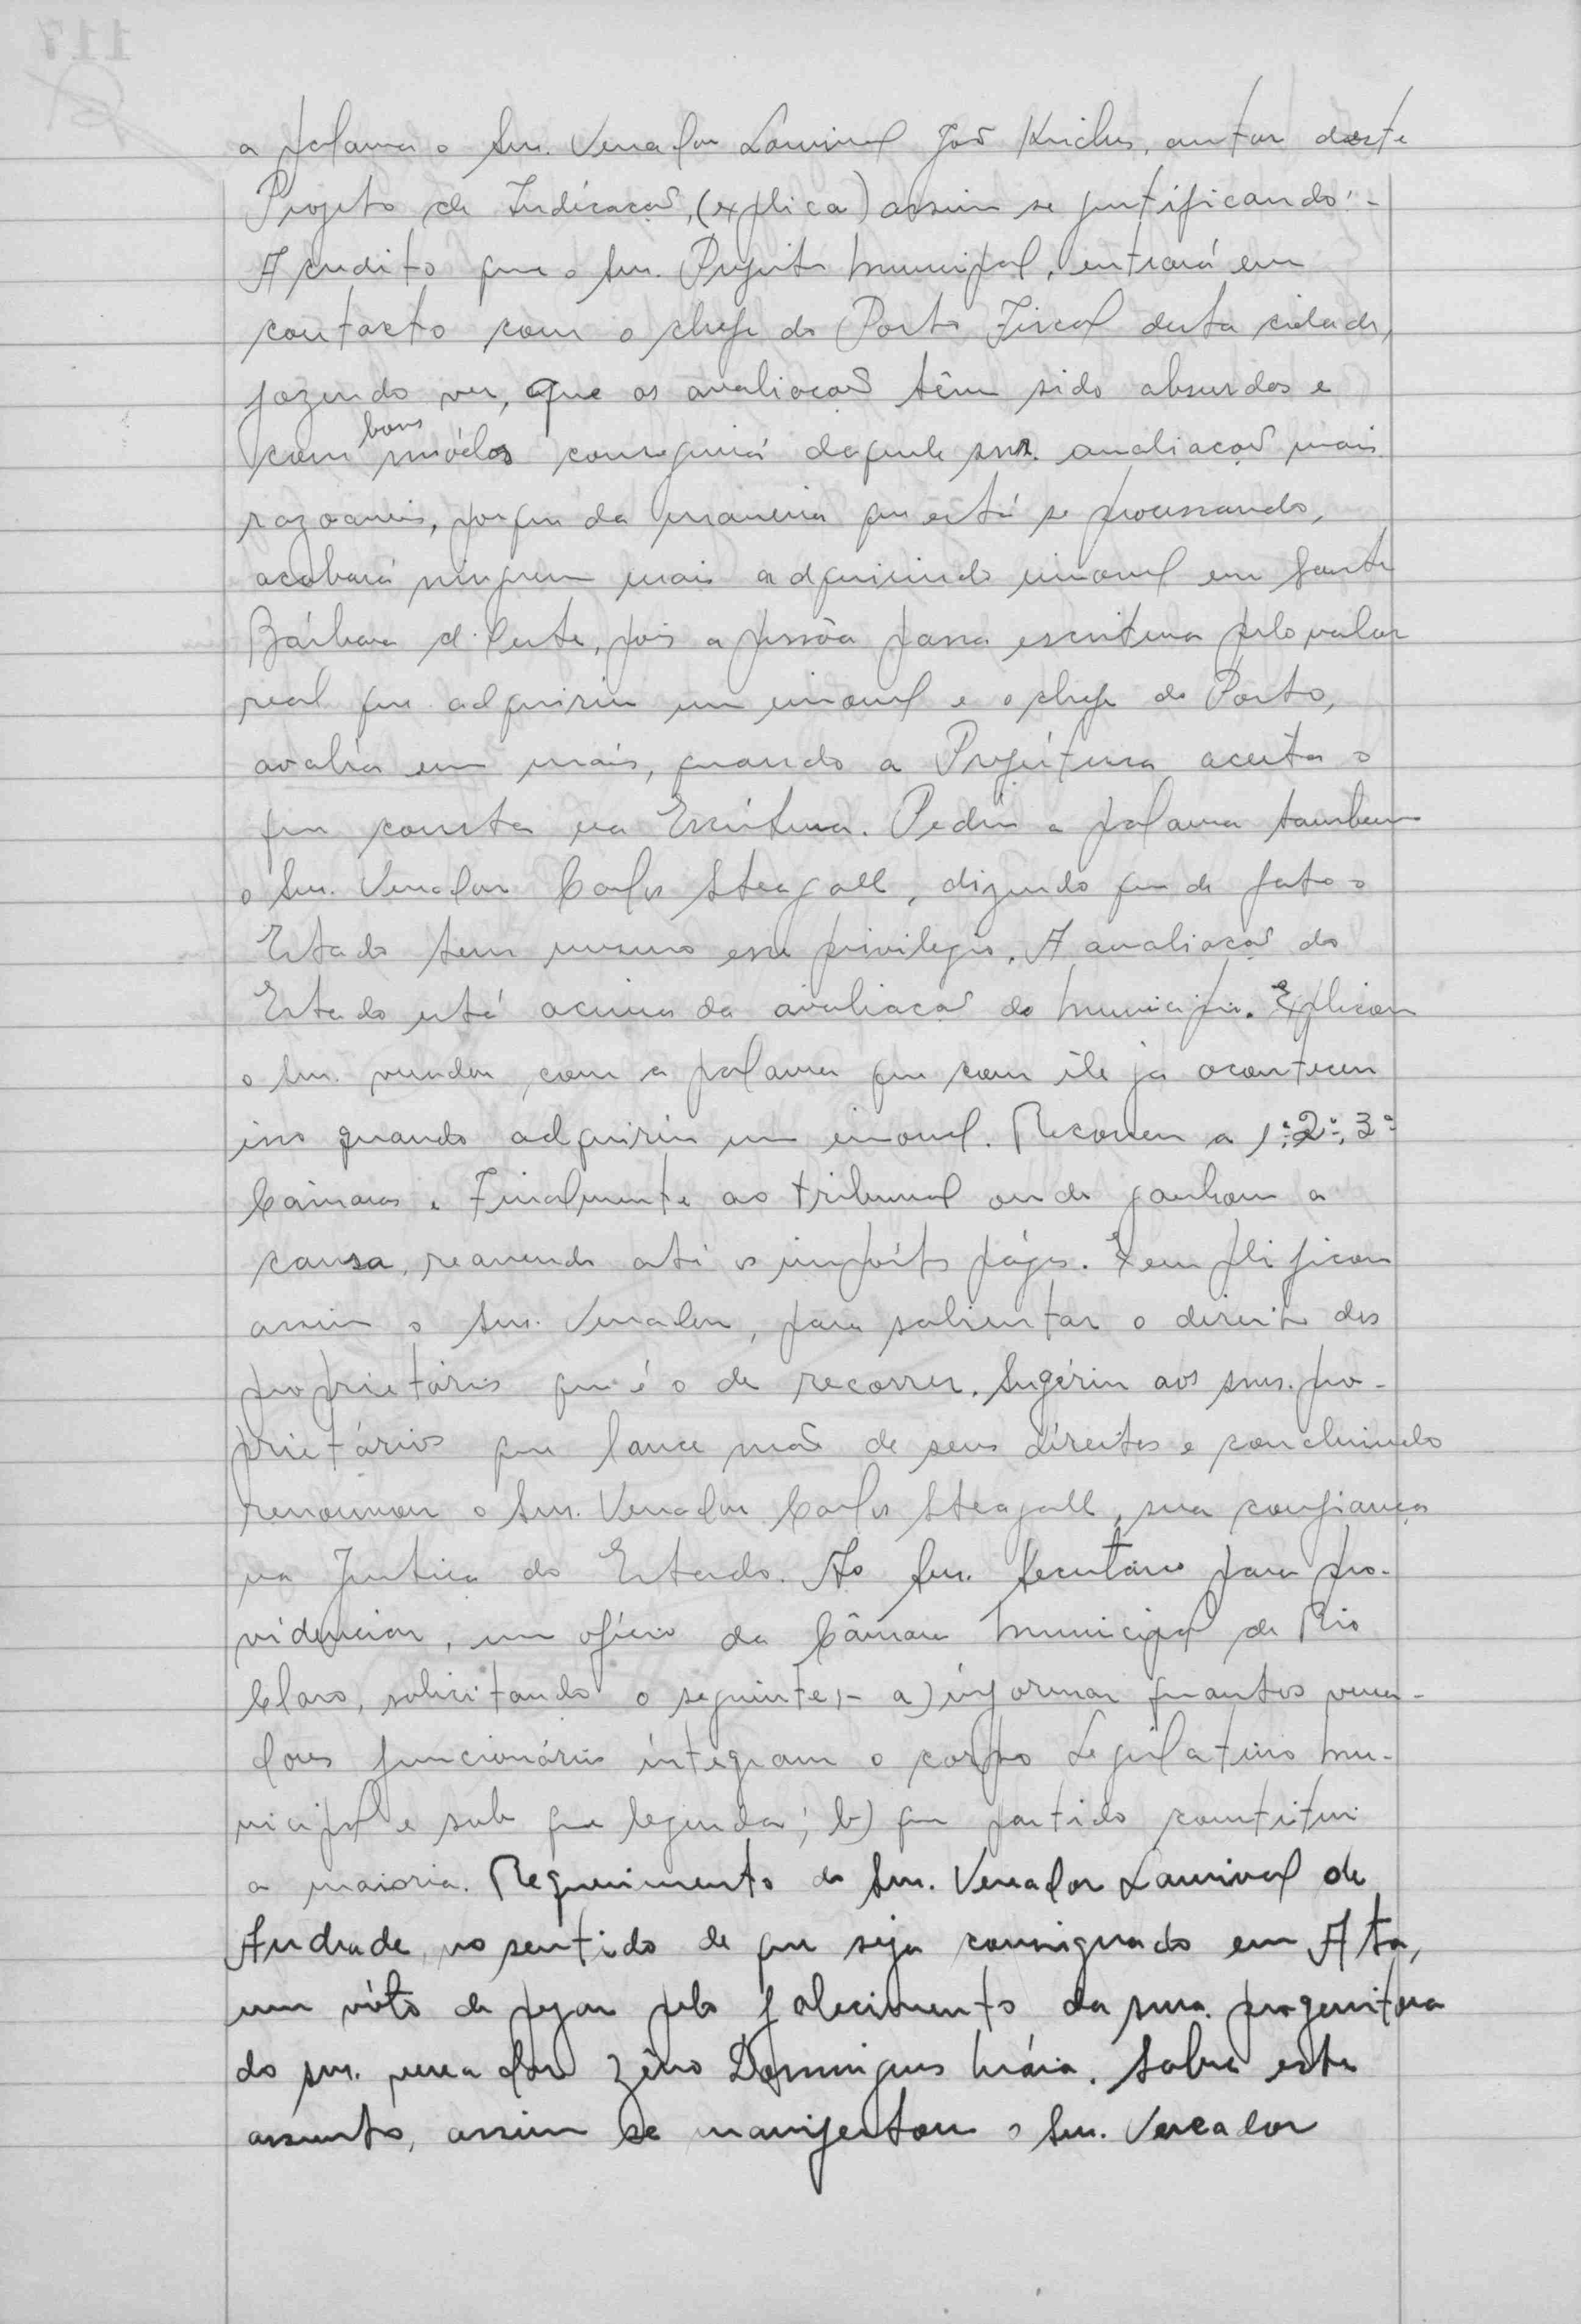 a palavra o Snr. Vereador Lourival João Kriches, autor deste
Projeto de Indicação, (explica) assim se justificando:-
Acredito que o Snr. Prefeito Municipal, entrará em
contacto com o chefe do Posto Fiscal desta cidade,
fazendo ver, que as avaliações têm sido absurdas e
com bons módos conseguirá daquele snr. avaliações mais
razoaveis, porque da maneira que está se processando,
acabará ninguem mais adquirindo imovel em Santa
Bárbara d'Oeste, pois a pessôa passa escritura pelo valor
real que adquiriu um imovel e o chefe do Posto,
avalia em mais, quando a Prefeitura aceita o
que consta na Escritura. Pediu a palavra tambem
o Snr. Vereador Carlos Steagall, dizendo que de fato o
Estado tem mesmo esse privilegio. A avaliação do
Estado está acima da avaliação do Municipio. Explicou
o Snr. vereador, com a palavra que com êle já aconteceu
isso quando adquiriu um imovel. Recorreu a 1ª, 2ª, 3ª
Câmaras e Finalmente ao tribunal onde ganhou a
causa, reavendo até os impôstos págos. Exemplificou
assim o Snr. Vereador, para salientar o direito dos
proprietários que é o de recorrer. Sugériu aos snrs. pro-
prietários que lance mão de seus direitos e concluindo
renovou o Snr. Vereador Carlos Steagall, sua confiança
na Justiça do Estado. Ao Snr. Secretário para pro-
videnciar, um oficio da Câmara Municipal de Rio
Claro, solicitando o seguinte:- a) informar quantos verea-
dores funcionários integram o corpo Legislativo Mu-
nicipal e sob que legenda; b) que partido constitui
a maioria. Requerimento do Snr. Vereador Lourival de
Andrade, no sentido de que seja consignado em Ata,
um vóto de pezar pelo falecimento da snra. progenitora
do snr. vereador Zêno Domingues Maia. Sobre este
assunto, assim se manifestou o Snr. Vereador